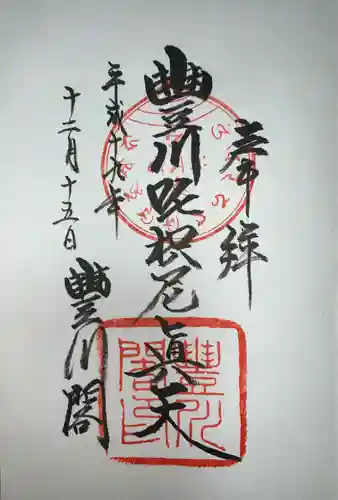 奉拝
豐川吒枳尼眞天
平成十九年
十二月十五日
豐川閣
豐川閣印